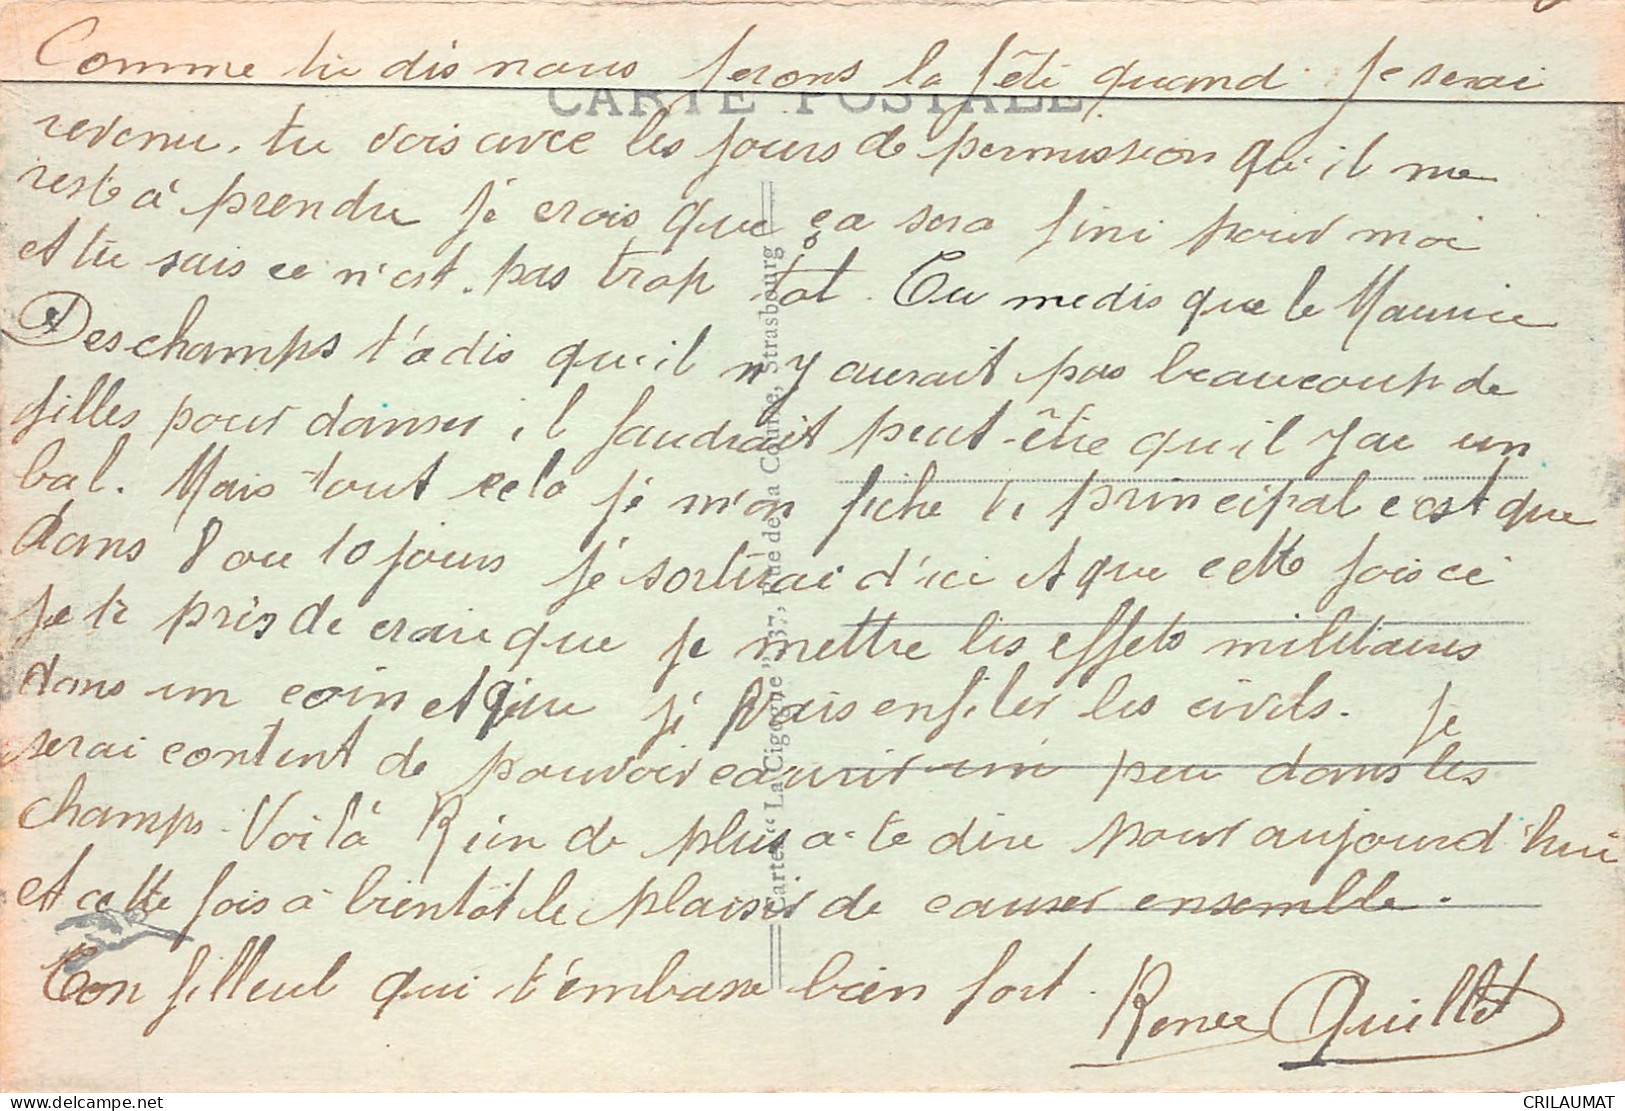 Comme tu dis nous ferons la fête quand je serai
CARTE POSTALE
revenu. tu vois avec les jours de permission qu'il me
reste à prendre je crois que ça sera fini pour moi
et tu sais ce n'est pas trop tôt. Tu me dis que le Maurice
Deschamps t'a dis qu'il n'y aurait pas beaucoup de
filles pour danser, il faudrait peut-être qu'il y ai un
bal. Mais tout cela je m'on fiche le principal c'est que
dans 8 ou 10 jours je sortirai d'ici et que cette fois ci
je te pris de croire que je mettre les effets militaires
dans un coin et que je vais enfiler les civils. je
serai content de pouvoir courir un peu dans les
champs. Voilà Rien de plus a te dire pour aujourd'hui
et cette fois à bientôt le plaisir de causer ensemble.
Ton filleul qui t'embrasse bien fort.
Renée Quillet
Cartes "La Cigogne" 37, Rue de la Course, Strasbourg
CRILAUMAT